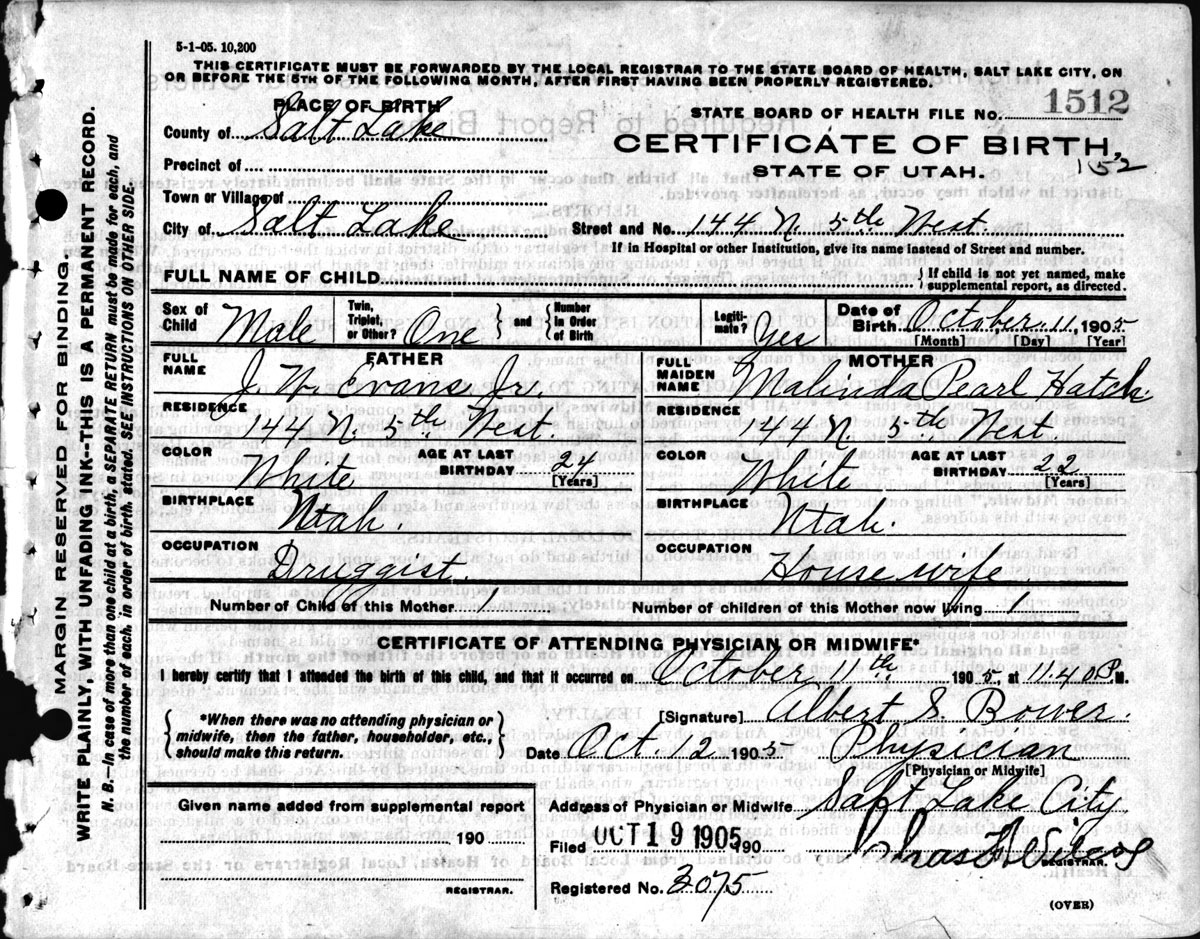 5-1-05. 10,200
THIS CERTIFICATE MUST BE FORWARDED BY THE LOCAL REGISTRAR TO THE STATE BOARD OF HEALTH, SALT LAKE CITY, ON
OR BEFORE THE 5TH OF THE FOLLOWING MONTH, AFTER FIRST HAVING BEEN PROPERLY REGISTERED.
PLACE OF BIRTH
County of Salt Lake
Precinct of
Town or Village of
City of Salt Lake
STATE BOARD OF HEALTH FILE NO. 1512
CERTIFICATE OF BIRTH,
STATE OF UTAH.
152
Street and No. 144 N. 5th West.
If in Hospital or other Institution, give its name instead of Street and number.
FULL NAME OF CHILD
If child is not yet named, make
supplemental report, as directed.
Sex of Child Male
Twin, Triplet, or Other? One
and
Number in Order of Birth
Legiti-mate? Yes
Date of Birth October 11, 1905
[Month] [Day] [Year]
FATHER
FULL NAME J. W. Evans Jr.
RESIDENCE
144 N. 5th West.
COLOR White
AGE AT LAST BIRTHDAY 24
[Years]
BIRTHPLACE
Utah.
OCCUPATION
Druggist.
MOTHER
FULL MAIDEN NAME Malinda Pearl Hatch
RESIDENCE
144 N. 5th West.
COLOR White
AGE AT LAST BIRTHDAY 22
[Years]
BIRTHPLACE
Utah.
OCCUPATION
House wife.
Number of Child of this Mother 1
Number of children of this Mother now living 1
CERTIFICATE OF ATTENDING PHYSICIAN OR MIDWIFE*
I hereby certify that I attended the birth of this child, and that it occurred on October 11th 1905, at 11.40 P. M.
*When there was no attending physician or
midwife, then the father, householder, etc.,
should make this return.
[Signature] Albert S. Bower.
Date Oct. 12 1905
Physician
[Physician or Midwife]
Given name added from supplemental report
190
REGISTRAR.
Address of Physician or Midwife Salt Lake City
Filed OCT 19 1905 190
REGISTRAR.
Registered No. 3075
(OVER)
MARGIN RESERVED FOR BINDING.
WRITE PLAINLY, WITH UNFADING INK--THIS IS A PERMANENT RECORD.
N. B.—In case of more than one child at a birth, a SEPARATE RETURN must be made for each, and
the number of each, in order of birth, stated. SEE INSTRUCTIONS ON OTHER SIDE.